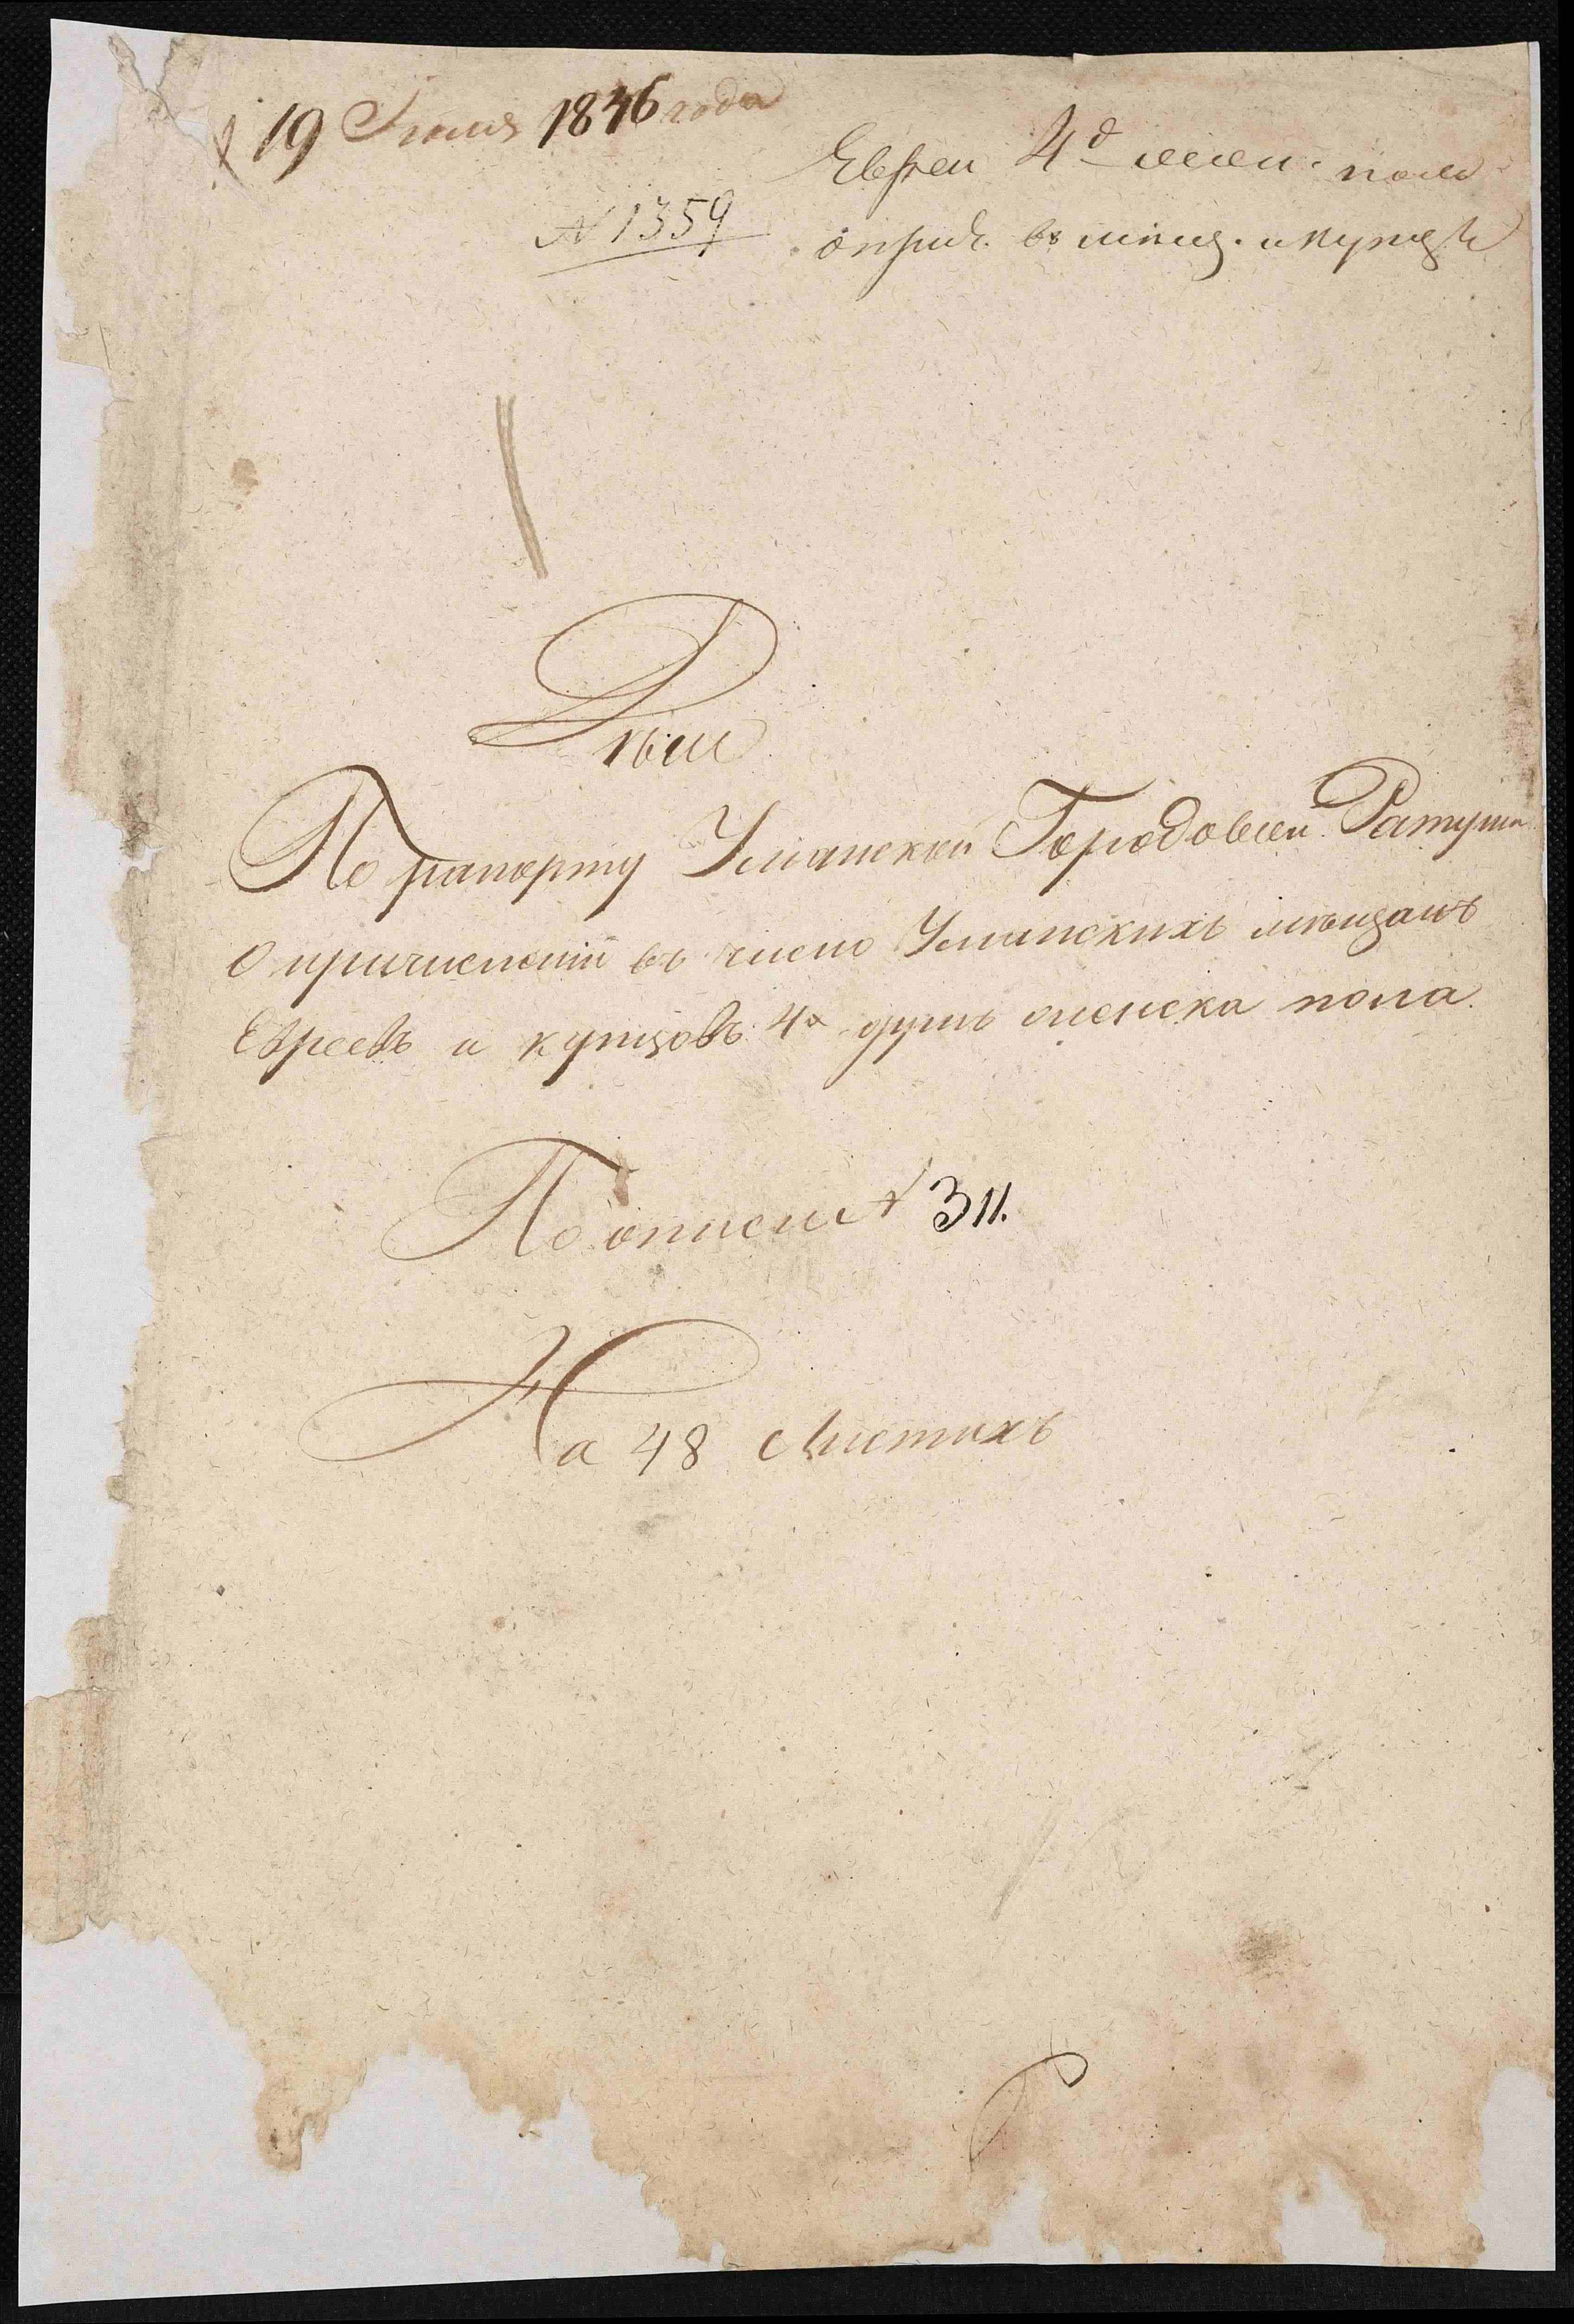 19 Июня 1846 года
Евреи 4 д женс. пола
№ 1359
о прич. въ мѣщ. и купцы
Дѣло
По рапорту Уманской Городовой Ратуши
О причислении въ число Уманскихъ мѣщанъ
Евреевъ и купцовъ 4х душъ женска пола.
По описи № 311.
На 48 Листахъ